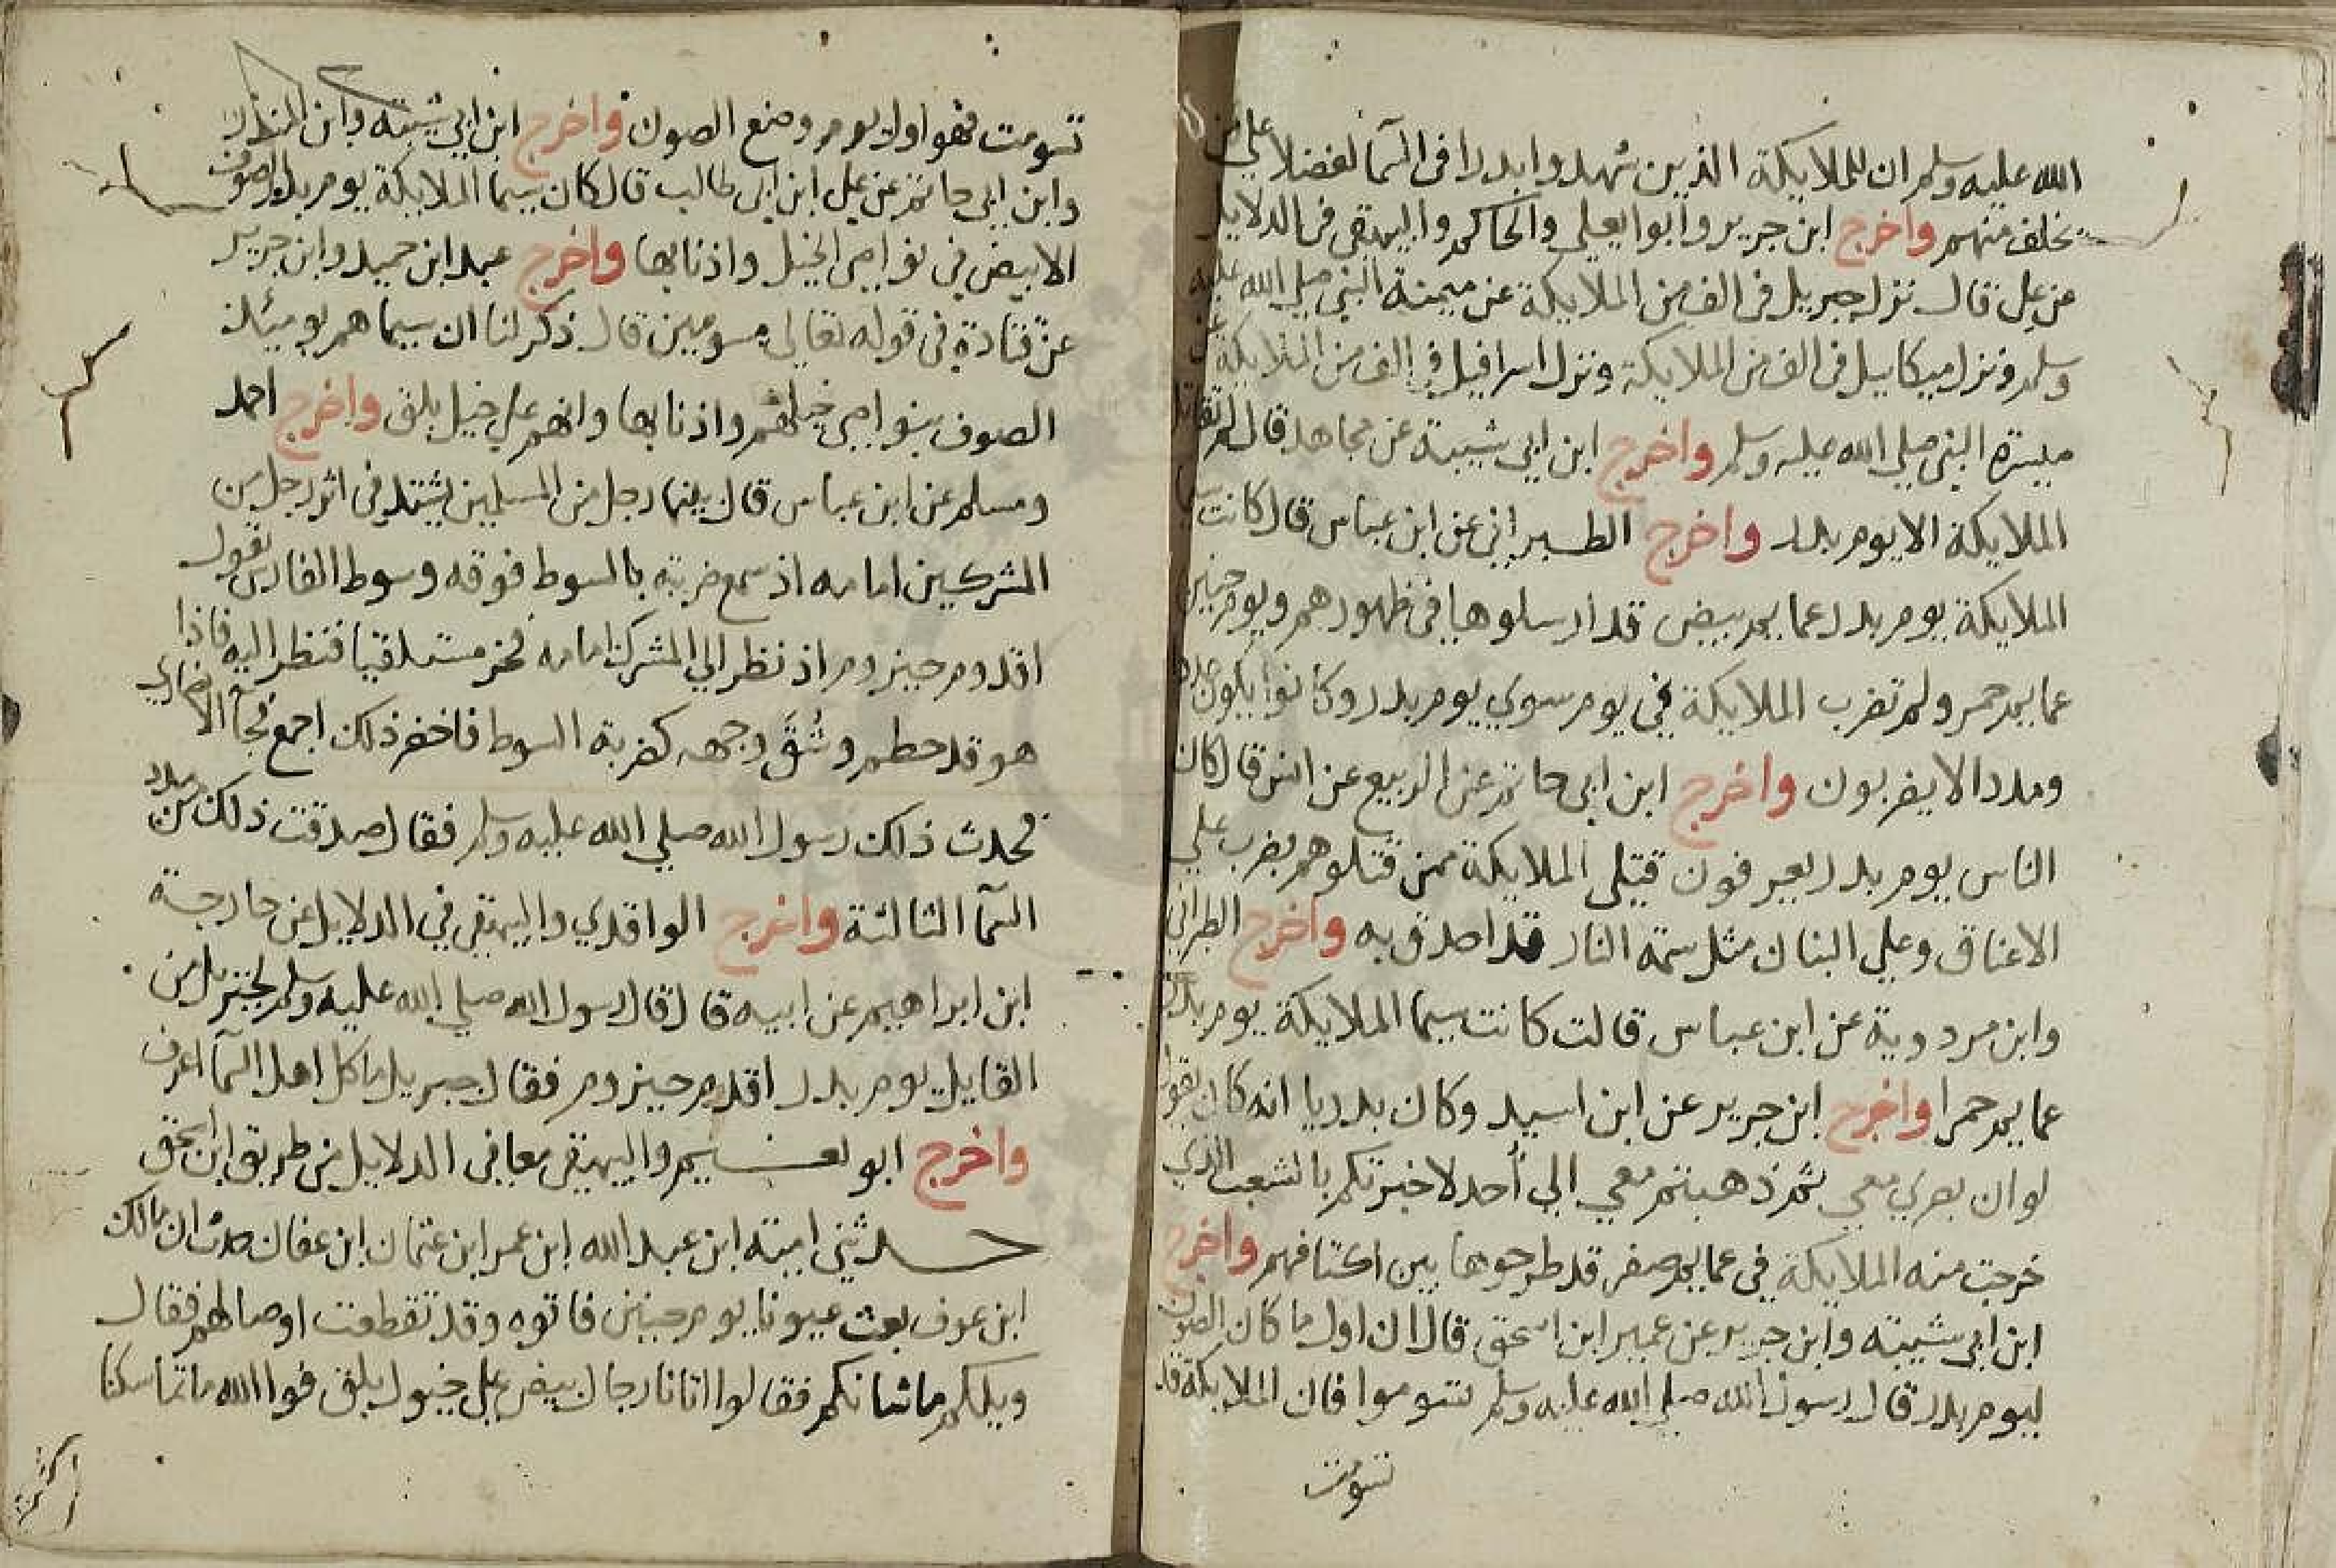 الله عليه وسلم ان للملايكة الذين شهدوا بدرا في السما لفضلا علي من
يخلف منهم واخرج ابن جرير وابوا يعلي والحاكم والبيهقي في الدلايل
عن علي قال نزل جبريل في الف من الملايكة عن ميمنة النبي صلي الله عليه
وسلم ونزل ميكاييل في الف من الملايكة ونزل اسرافيل في الف من الملايكة عن
ميسرة النبي صلي الله عليه وسلم واخرج ابن ابي شيبة عن مجاهد قال لم تقاتل
الملايكة الا يوم بدر واخرج الطبراني عن ابن عباس قال كانت سيما
الملايكة يوم بدر عمايم بيض قد ارسلوها في ظهورهم ويوم حنين
عمايم حمر ولم تضرب الملايكة في يوم سوي يوم بدر وكانوا يكونون عددا
ومددا لا يضربون واخرج ابن ابي حاتم عن الربيع عن انس قال كان
الناس يوم بدر يعرفون قتيلي الملايكة ممن قتلوهم بضرب علي
الاعناق وعلي البنان مثل سمة النار قد احدق به واخرج الطبراني
وابن مردوية عن ابن عباس قالت كانت سيما الملايكة يوم بدر
عمايم حمرا واخرج ابن جرير عن ابن اسيد وكان بدريا انه كان يقول
لو ان بصري معي ثم ذهبتم معي الي أحد لاخبرتكم بالشعب الذي
خرجت منه الملايكة في عمايم صفر قد طرحوها بين اكتافهم واخرج
ابن ابي شيبته وابن جرير عن عمير ابن اسحق قال ان اول ما كان الصوف
ليوم بدر قال رسول الله صلي الله عليه وسلم تسوموا فان الملايكة قد
تسومت
تسومت فهو اول يوم وضع الصوف واخرج ابن ابي شيبته وابن المنذر
وابن ابي حاتم عن علي ابن ابي طالب قال كان سيما الملايكة يوم بدر الصوف
الابيض في نواصي الخيل واذنابها واخرج عبد ابن حميد وابن جرير
عن قتادة في قوله تعالي مسومين قال ذكر لنا ان سيماهم يوميئذ
الصوف بنواصي خيلهم واذنابها وانهم علي خيل بلق واخرج احمد
ومسلم عن ابن عباس قال بينما رجل من المسلمين يشتد في اثر رجل من
المشركين امامه اذ سمع ضربة بالسوط فوقه وسوط الفارس يقول
اقدوم حيزوم اذ نظر الي المشرك امامه فخر مستلقيا فنظر اليه فاذا
هو قد حطم وشُقَّ وجهه كضربة السوط فاخضر ذلك اجمع فجا الانصاري
فحدث ذلك رسول الله صلي الله عليه وسلم فقال صدقت ذلك من مدد
السما الثالثة واخرج الواقدي والبيهقي في الدلايل عن خارجة
ابن ابراهيم عن ابيه قال قال رسول الله صلي الله عليه وسلم لجبريل من
القايل يوم بدر اقدم حيزوم فقال جبريل ما كل اهل السما اعرف
واخرج ابو نعيم والبيهقي معا في الدلايل من طريق ابن اسحق
حدثني امية ابن عبد الله ابن عمر ابن عثمان ابن عفان حدث ان مالك
ابن عوف بعث عيونا يوم حنين فاتوه وقد تقطعت اوصالهم فقال
ويلكم ما شانكم فقالوا اتانا رجال بيض علي خيول بلق فوا الله ما تماسكنا